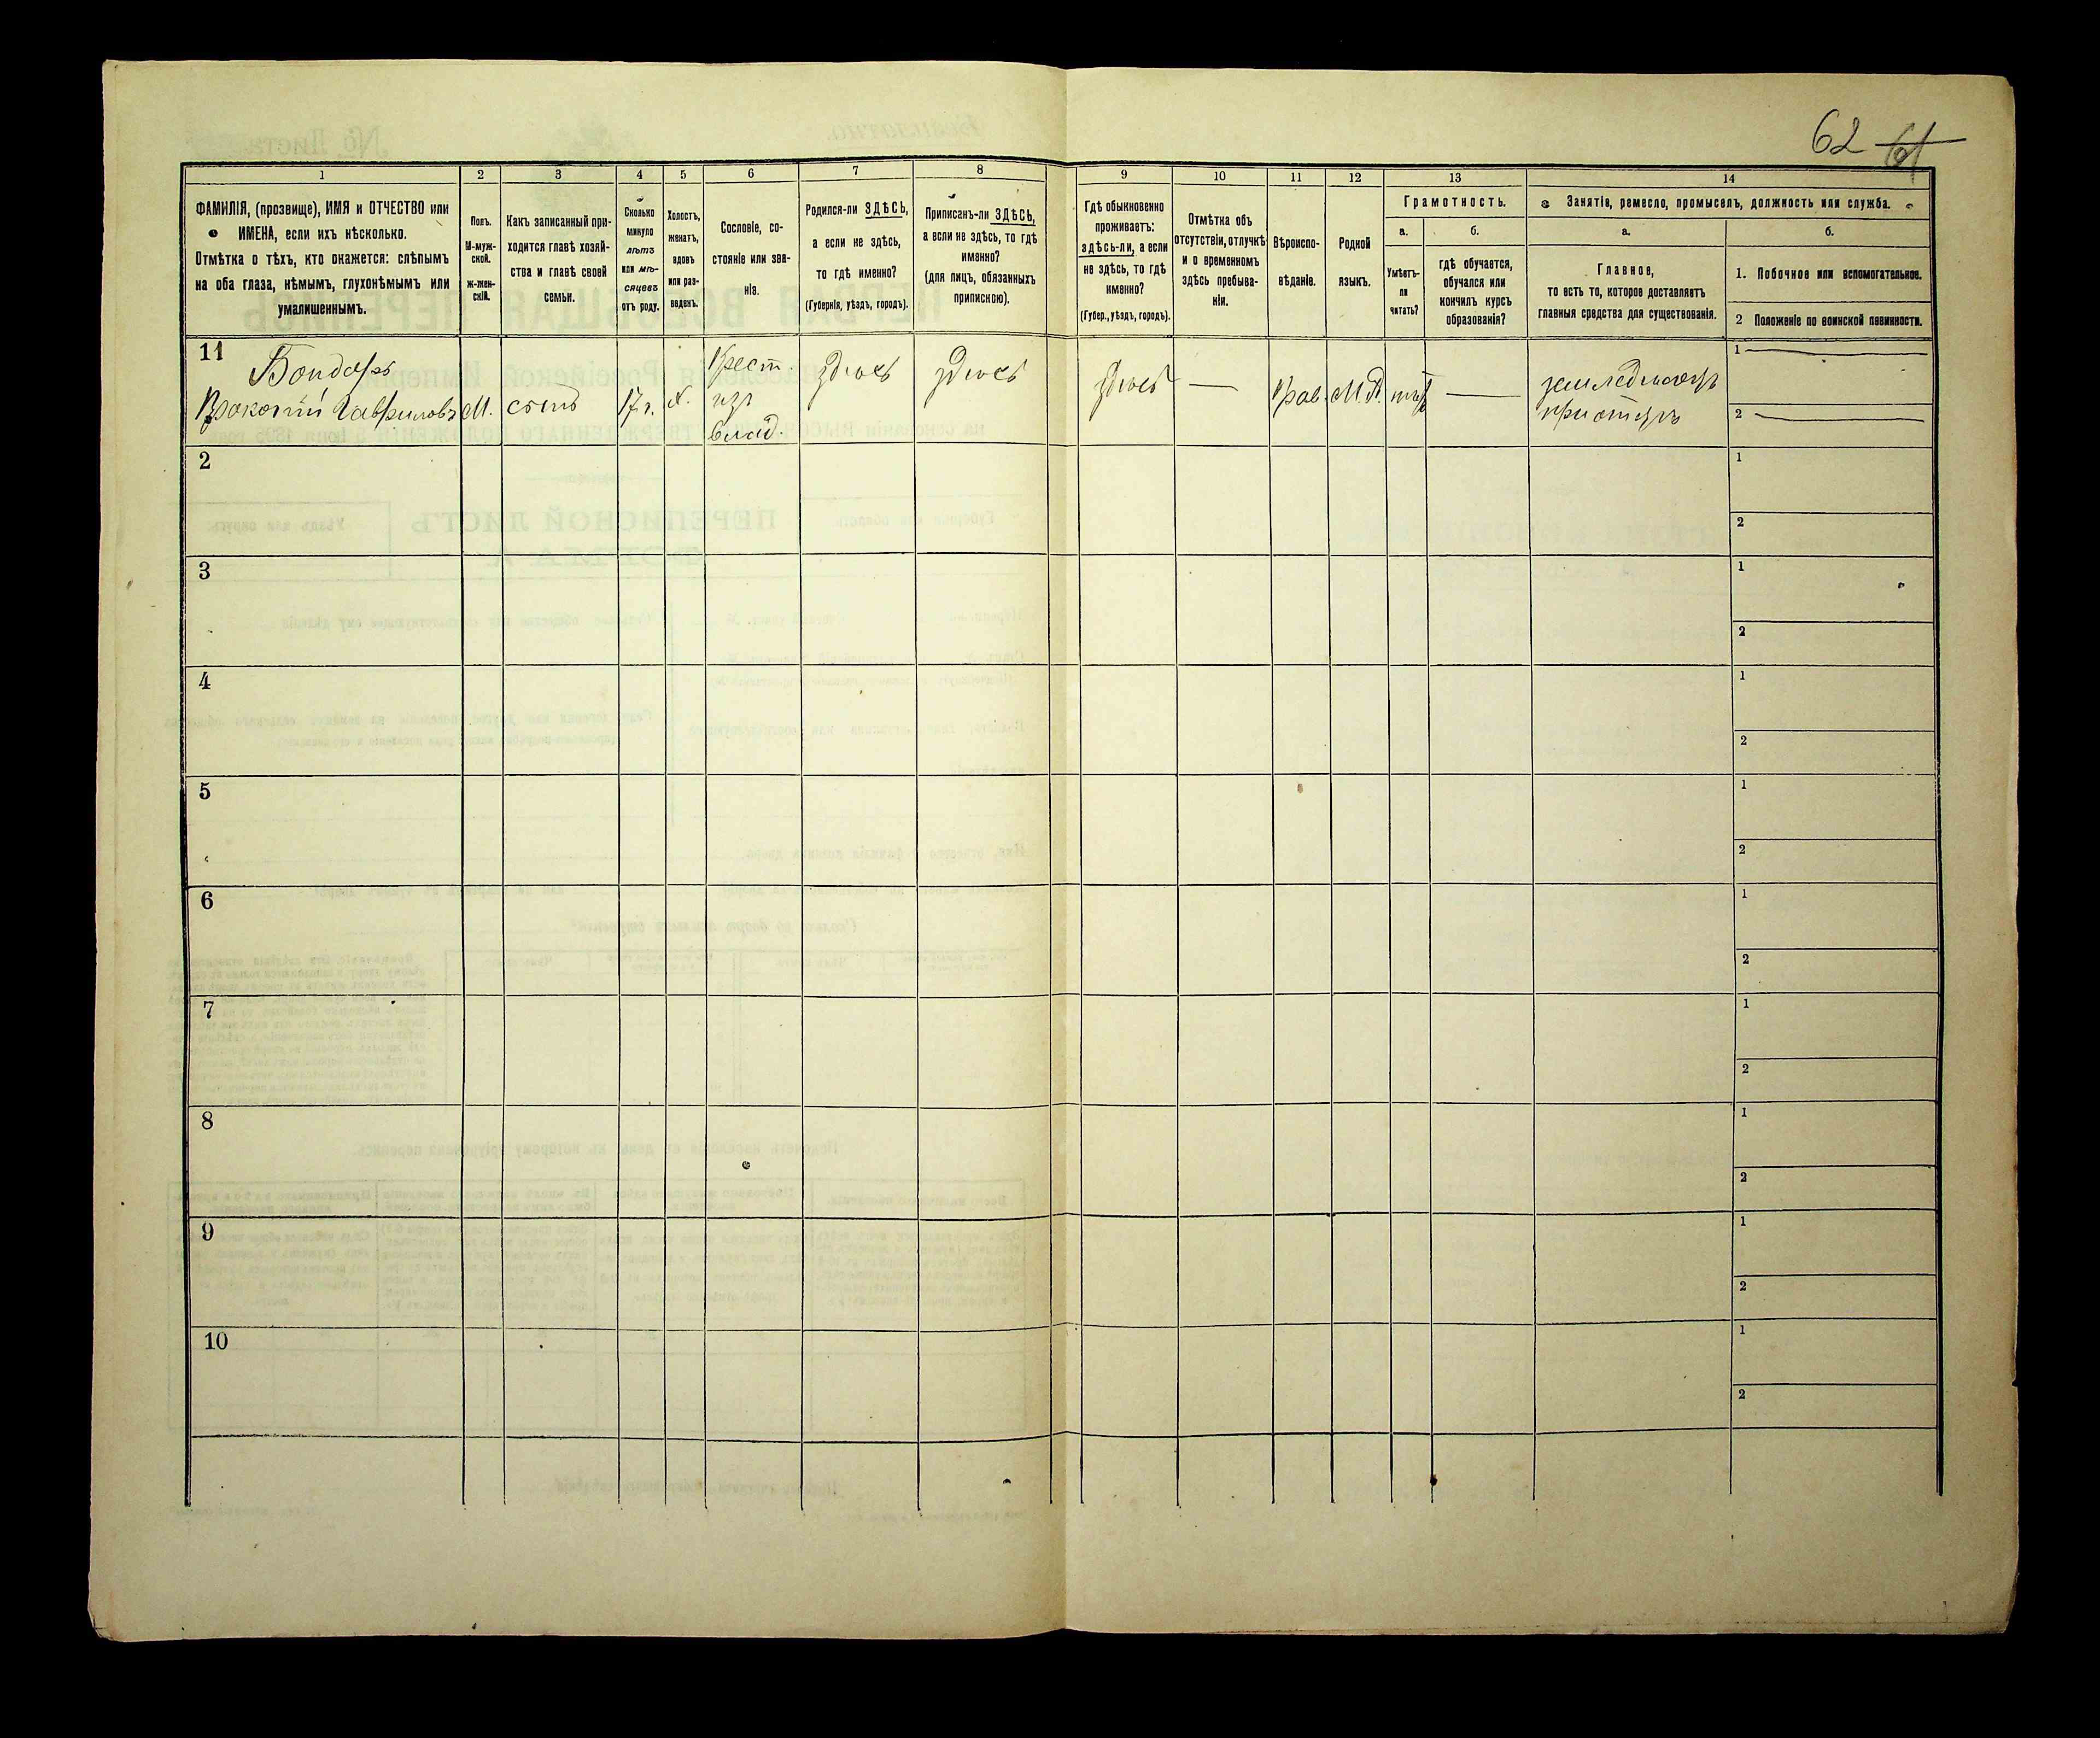 62 61
1
2
3
4
5
6
7
8
9
10
11
12
13
14
ФАМИЛІЯ, (прозвище), ИМЯ и ОТЧЕСТВО или
ИМЕНА, если ихъ нѣсколько.
Отмѣтка о тѣхъ, кто окажется: слѣпымъ
на оба глаза, нѣмымъ, глухонѣмымъ или
умалишеннымъ.
Полъ.
М-муж-
ской.
ж-жен-
скій.
Какъ записанный при-
ходится главѣ хозяй-
ства и главѣ своей
семьи.
Сколько
минуло
лѣтъ
или мѣ-
сяцевъ
отъ роду.
Холостъ,
женатъ,
вдовъ
или раз-
веденъ.
Сословіе, со-
стояніе или зва-
ніе.
Родился-ли ЗДѢСЬ,
а если не здѣсь,
то гдѣ именно?
(Губернія, уѣздъ, городъ).
Приписанъ-ли ЗДѢСЬ,
а если не здѣсь, то гдѣ
именно?
(для лицъ, обязанныхъ
припискою).
Гдѣ обыкновенно
проживаетъ:
здѣсь-ли, а если
не здѣсь, то гдѣ
именно?
(Губер., уѣздъ, городъ).
Отмѣтка объ
отсутствіи, отлучкѣ
и о временномъ
здѣсь пребыва-
ніи.
Вѣроиспо-
вѣданіе.
Родной
языкъ.
Грамотность.
а.
Умѣетъ-
ли
читать?
б.
гдѣ обучается,
обучался или
кончилъ курсъ
образованія?
Занятіе, ремесло, промыселъ, должность или служба.
а.
Главное,
то есть то, которое доставляетъ
главныя средства для существованія.
б.
1. Побочное или вспомогательное.
2 Положеніе по воинской повинности.
11
Бондарь
Прокопій Гавриловъ
М.
сынъ
17 г.
х.
Крест.
изъ
влад.
здѣсь
здѣсь
здѣсь
—
Прав.
М. Р.
нѣтъ
—
земледѣлецъ
при отцѣ
1 —
2 —
2
1
2
3
1
2
4
1
2
5
1
2
6
1
2
7
1
2
8
1
2
9
1
2
10
1
2